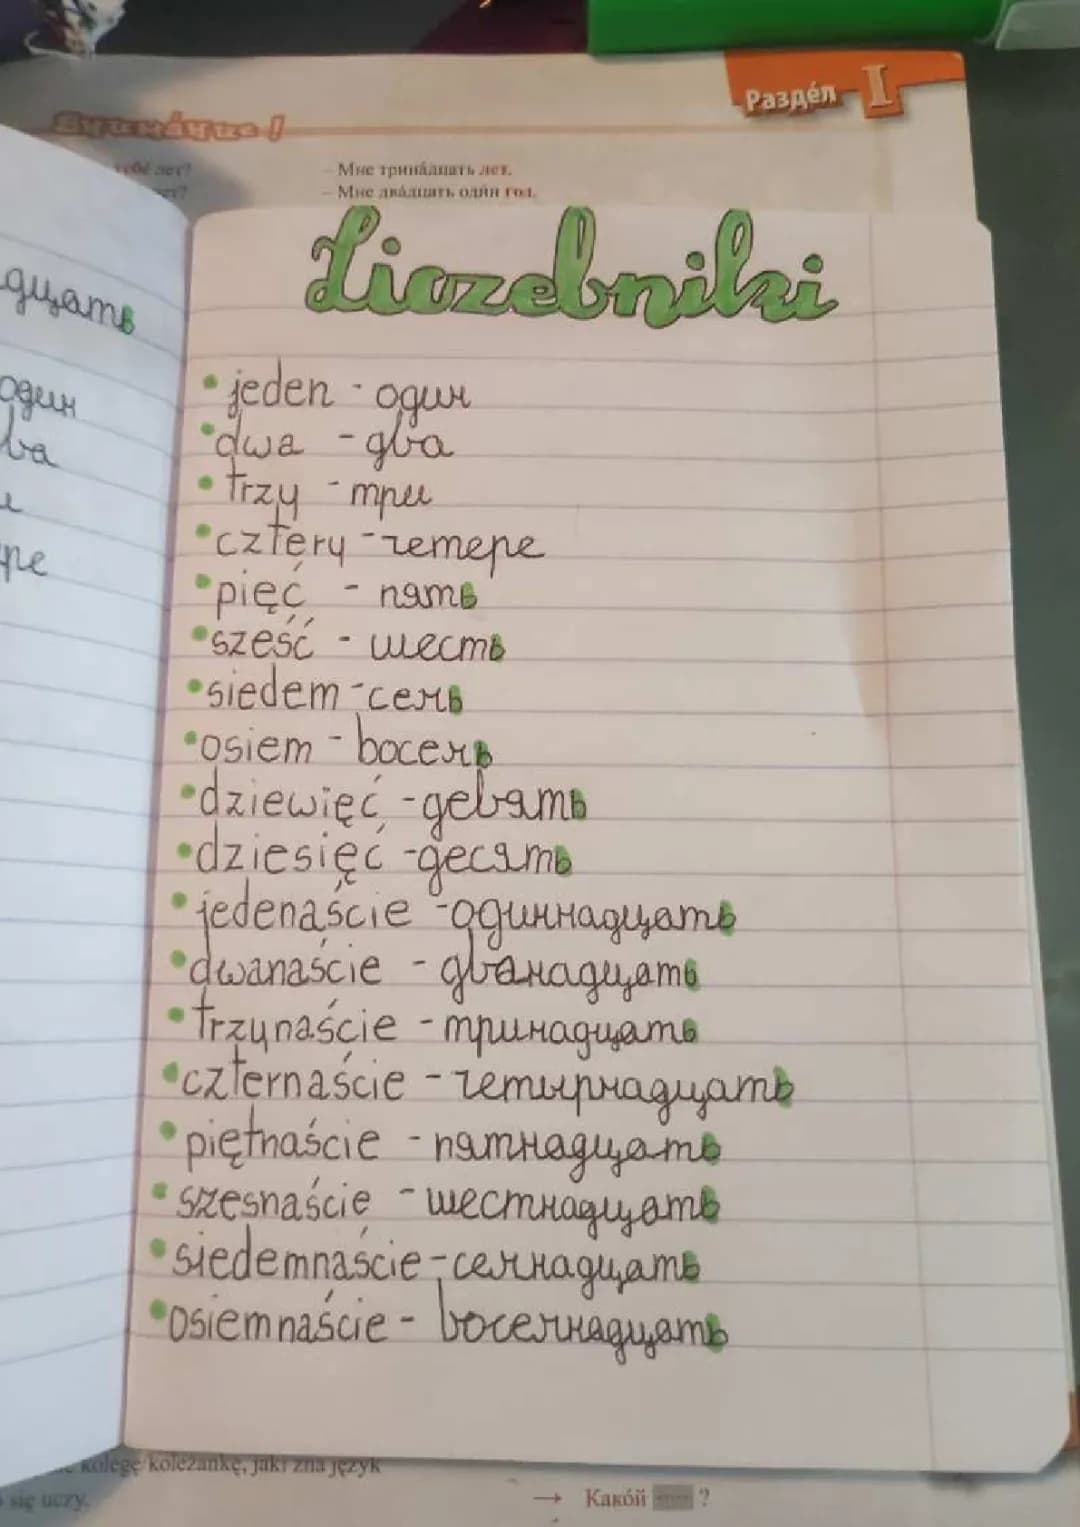 Раздéл I
Внимáние!
тебé лет?
– Мне тринáдцать лет.
лет?
– Мне двáдцать одúн год.
Liczebniki
дцать
один
ва
ре
• jeden - один
• dwa - два
• trzy - три
• cztery - четере
• pięć - пять
• sześć - шесть
• siedem - семь
• osiem - восемь
• dziewięć - девять
• dziesięć - десять
• jedenaście - одиннадцать
• dwanaście - дванадцать
• trzynaście - тринадцать
• czternaście - четырнадцать
• piętnaście - пятнадцать
• szesnaście - шестнадцать
• siedemnaście - семнадцать
• osiemnaście - восемнадцать
kolegę/koleżankę, jaki zna język
się uczy.
→ Какóй ?